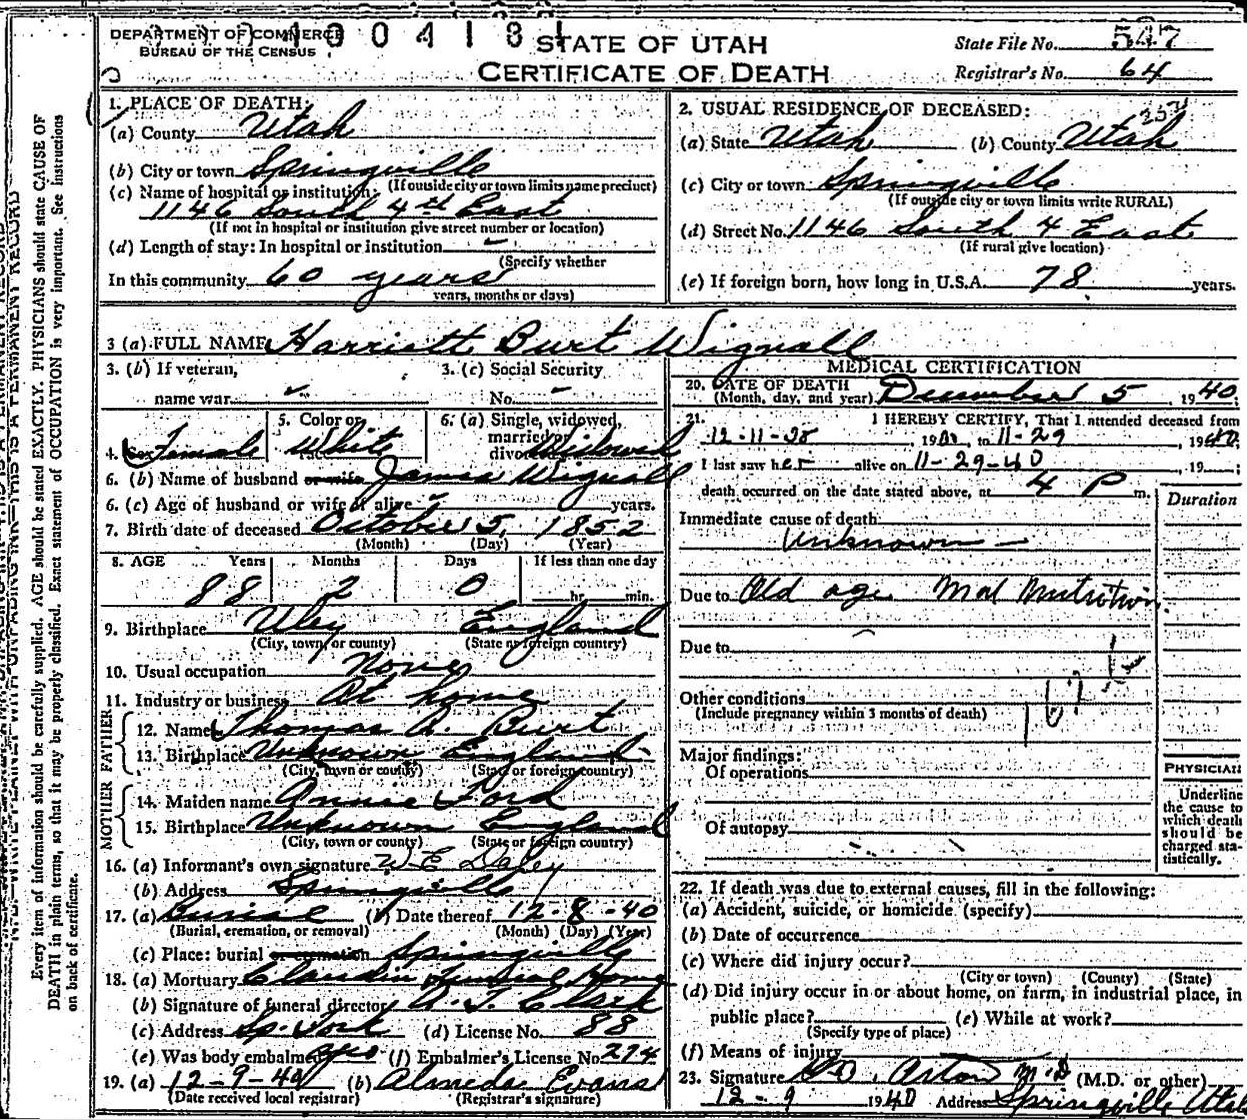 DEPARTMENT OF COMMERCE
BUREAU OF THE CENSUS
STATE OF UTAH
CERTIFICATE OF DEATH
State File No. 547
Registrar's No. 64
1. PLACE OF DEATH:
(a) County Utah
(b) City or town Springville
(If outside city or town limits name precinct)
(c) Name of hospital or institution:
1146 South 4th East
(If not in hospital or institution give street number or location)
(d) Length of stay: In hospital or institution
(Specify whether
In this community 60 years
years, months or days)
2. USUAL RESIDENCE OF DECEASED:
(a) State Utah (b) County Utah
(c) City or town Springville
(If outside city or town limits write RURAL)
(d) Street No. 1146 South 4 East
(If rural give location)
(e) If foreign born, how long in U.S.A. 78 years.
3 (a) FULL NAME Harriett Burt Wignall
3. (b) If veteran,
name war
3. (c) Social Security
No.
4. Sex Female
5. Color or
White
6. (a) Single, widowed,
married or
divorced Widowed
6. (b) Name of husband or wife James Wignall
6. (c) Age of husband or wife if alive years.
7. Birth date of deceased October 5, 1852
(Month) (Day) (Year)
8. AGE Years Months Days If less than one day
88 2 0 hr. min.
9. Birthplace Uley England
(City, town or county) (State or foreign country)
10. Usual occupation None
11. Industry or business At home
FATHER
12. Name Thomas A. Burt
13. Birthplace Unknown England
(City, town or county) (State or foreign country)
MOTHER
14. Maiden name Annie Ford
15. Birthplace Unknown England
(City, town or county) (State or foreign country)
16. (a) Informant's own signature W E Daley
(b) Address Springville
17. (a) Burial (b) Date thereof 12-8-40
(Burial, cremation, or removal) (Month) (Day) (Year)
(c) Place: burial or cremation Springville
18. (a) Mortuary Funeral Home
(b) Signature of funeral director
(c) Address Sp. (d) License No. 88
(e) Was body embalmed yes (f) Embalmer's License No. 274
19. (a) 12-9-40 (b) Almeda Evans
(Date received local registrar) (Registrar's signature)
MEDICAL CERTIFICATION
20. DATE OF DEATH
(Month, day, and year) December 5, 1940;
21. I HEREBY CERTIFY, That I attended deceased from
12-11-38, 19, to 11-29, 1940;
I last saw her alive on 11-29-40, 19;
death occurred on the date stated above, at 4 P m.
Duration
Immediate cause of death
Unknown
Due to Old age Mal Nutrition
Due to
Other conditions
(Include pregnancy within 3 months of death)
Major findings:
Of operations
Of autopsy
PHYSICIAN
Underline
the cause to
which death
should be
charged sta-
tistically.
22. If death was due to external causes, fill in the following:
(a) Accident, suicide, or homicide (specify)
(b) Date of occurrence
(c) Where did injury occur?
(City or town) (County) (State)
(d) Did injury occur in or about home, on farm, in industrial place, in
public place? (e) While at work?
(Specify type of place)
(f) Means of injury
23. Signature M.D (M.D. or other)
12-9 1940 Address Springville Utah
Every item of information should be carefully supplied. AGE should be stated EXACTLY. PHYSICIANS should state CAUSE OF
DEATH in plain terms, so that it may be properly classified. Exact statement of OCCUPATION is very important. See instructions
on back of certificate.